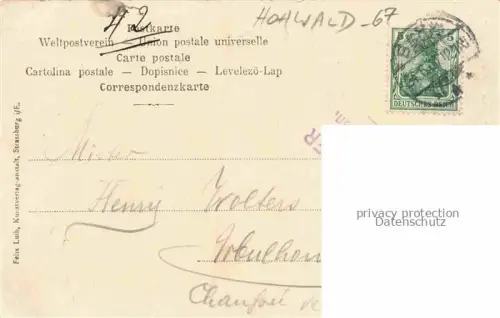 42
HOHWALD_67
Postkarte
Weltpostverein – Union postale universelle
Carte postale
Cartolina postale – Dopisnice – Levelező-Lap
Correspondenzkarte
5
DEUTSCHES REICH
Mister
Henry Wolters
Felix Luib, Kunstverlag-anstalt, Strassburg i/E.
privacy protection
Datenschutz